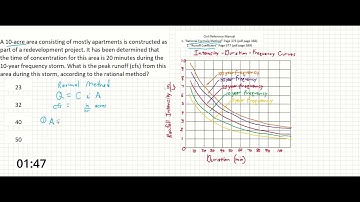 A 10-acre area consisting of mostly apartments is constructed as
part of a redevelopment project. It has been determined that
the time of concentration for this area is 20 minutes during the
10-year frequency storm. What is the peak runoff (cfs) from this
area during this storm, according to the rational method?
23
32
40
50
Rational Method
Q = C i A
cfs = in/hr acres
① A =
01:47
Civil Reference Manual
1. "Rational Formula Method"
2. "Runoff Coefficients"
Intensity - Duration - Frequency Curves
year frequency
year frequency
year frequency
year frequency
year frequency
Rainfall Intensity
Duration (min)